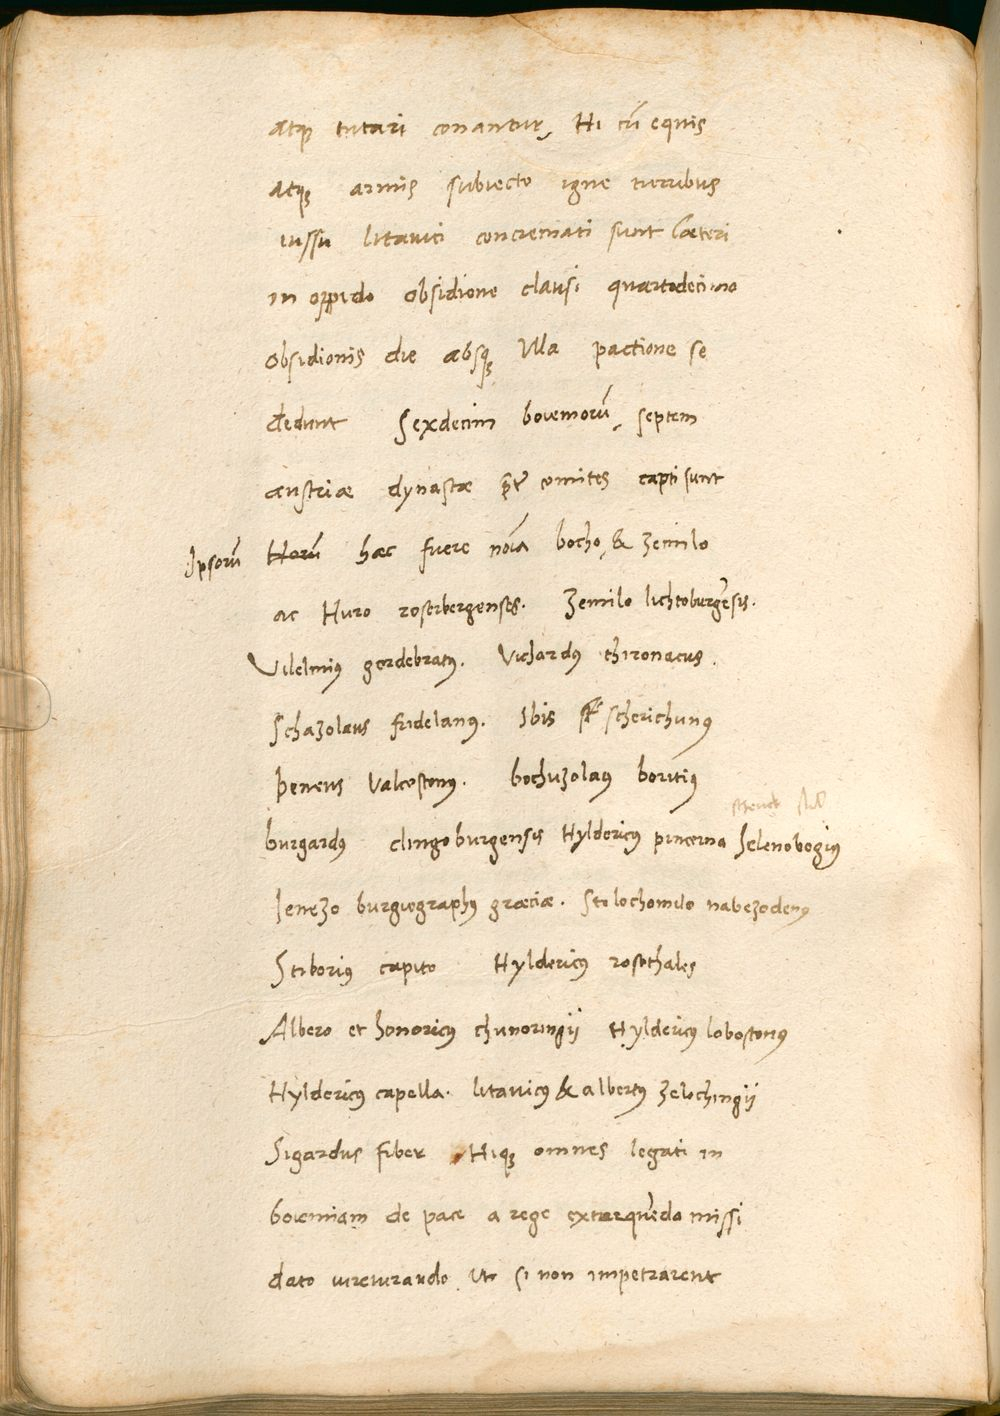 atqꝫ tutari conantur, Hi cū equis
atqꝫ armis subiecto igne turribus
iussu litauici concremati sunt Cæteri
in oppido obsidione clausi quartodecimo
obsidionis die absqꝫ Vlla pactione se
dedunt Sexdecim boiemorū, septem
austriæ dynastæ comites capti sunt
Ipsorū Horū hæc fuere noīa bocho, & Zemilo
ac Huro roserbergenses. Zemilo lichtoburgēsis.
Vilelmꝰ gerdebratꝰ. Vichardꝰ thironacus.
Schazolaus fridelanꝰ. Ibis scherichunꝰ
Peneus Valcostonꝰ. bochuzolaꝰ borutiꝰ
burgardꝰ clingoburgensis Hyldericꝰ pincerna Selenobogiꝰ
Jenezo burgiographꝰ græciæ. Stolochomilo nabezodenꝰ
Stiboriꝰ capito Hyldericꝰ rosethales
Albero et honoricꝰ chunoringij Hyldericꝰ lobostonꝰ
Hyldericꝰ capella. litauicꝰ & albertꝰ zelochingij
Sigardus fiber Hiqꝫ omnes legati in
boiemiam de pace a rege extorquēda missi
dato iureiurando Vt si non impetrarent